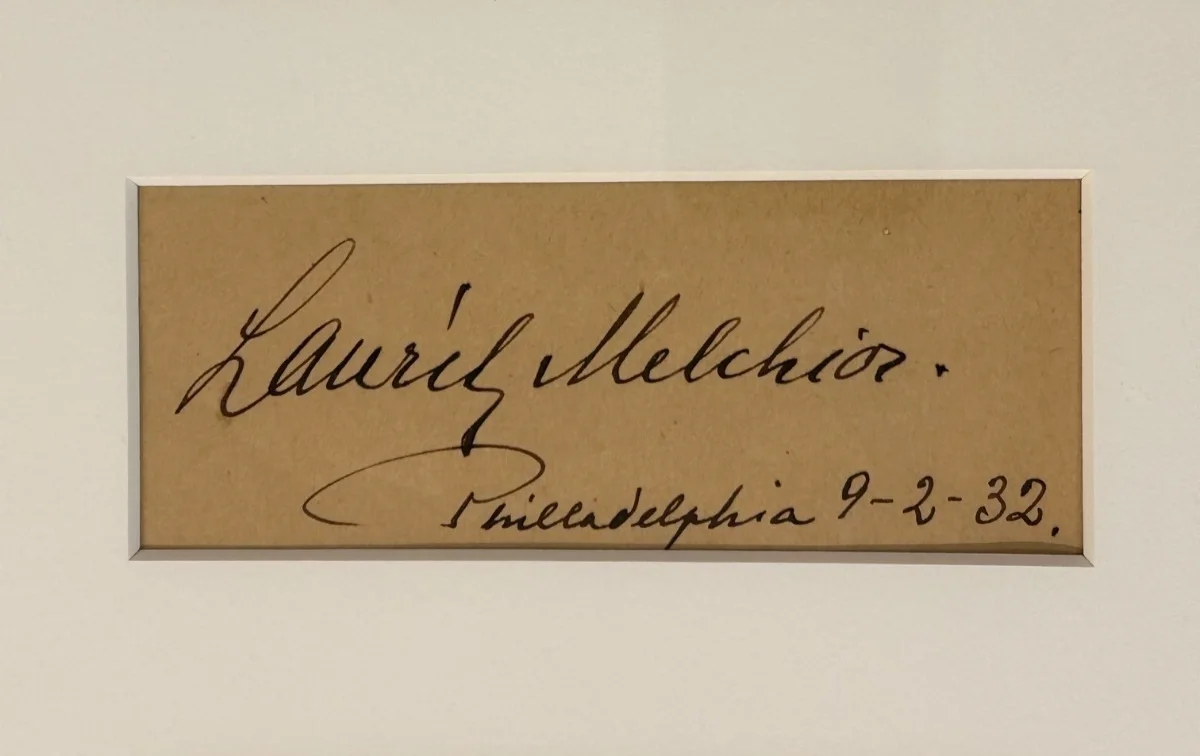 Lauritz Melchior.
Philladelphia 9-2-32.